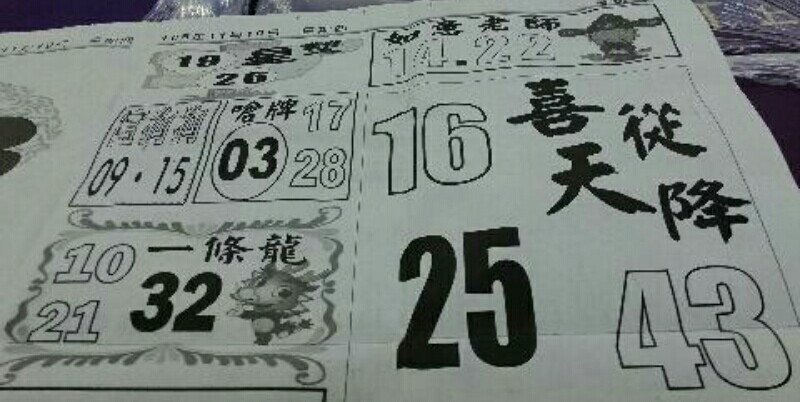 如意老師
14.22
18
26
嗆牌
09.15
03
17
28
一條龍
10
32
21
喜從天降
16
25
43